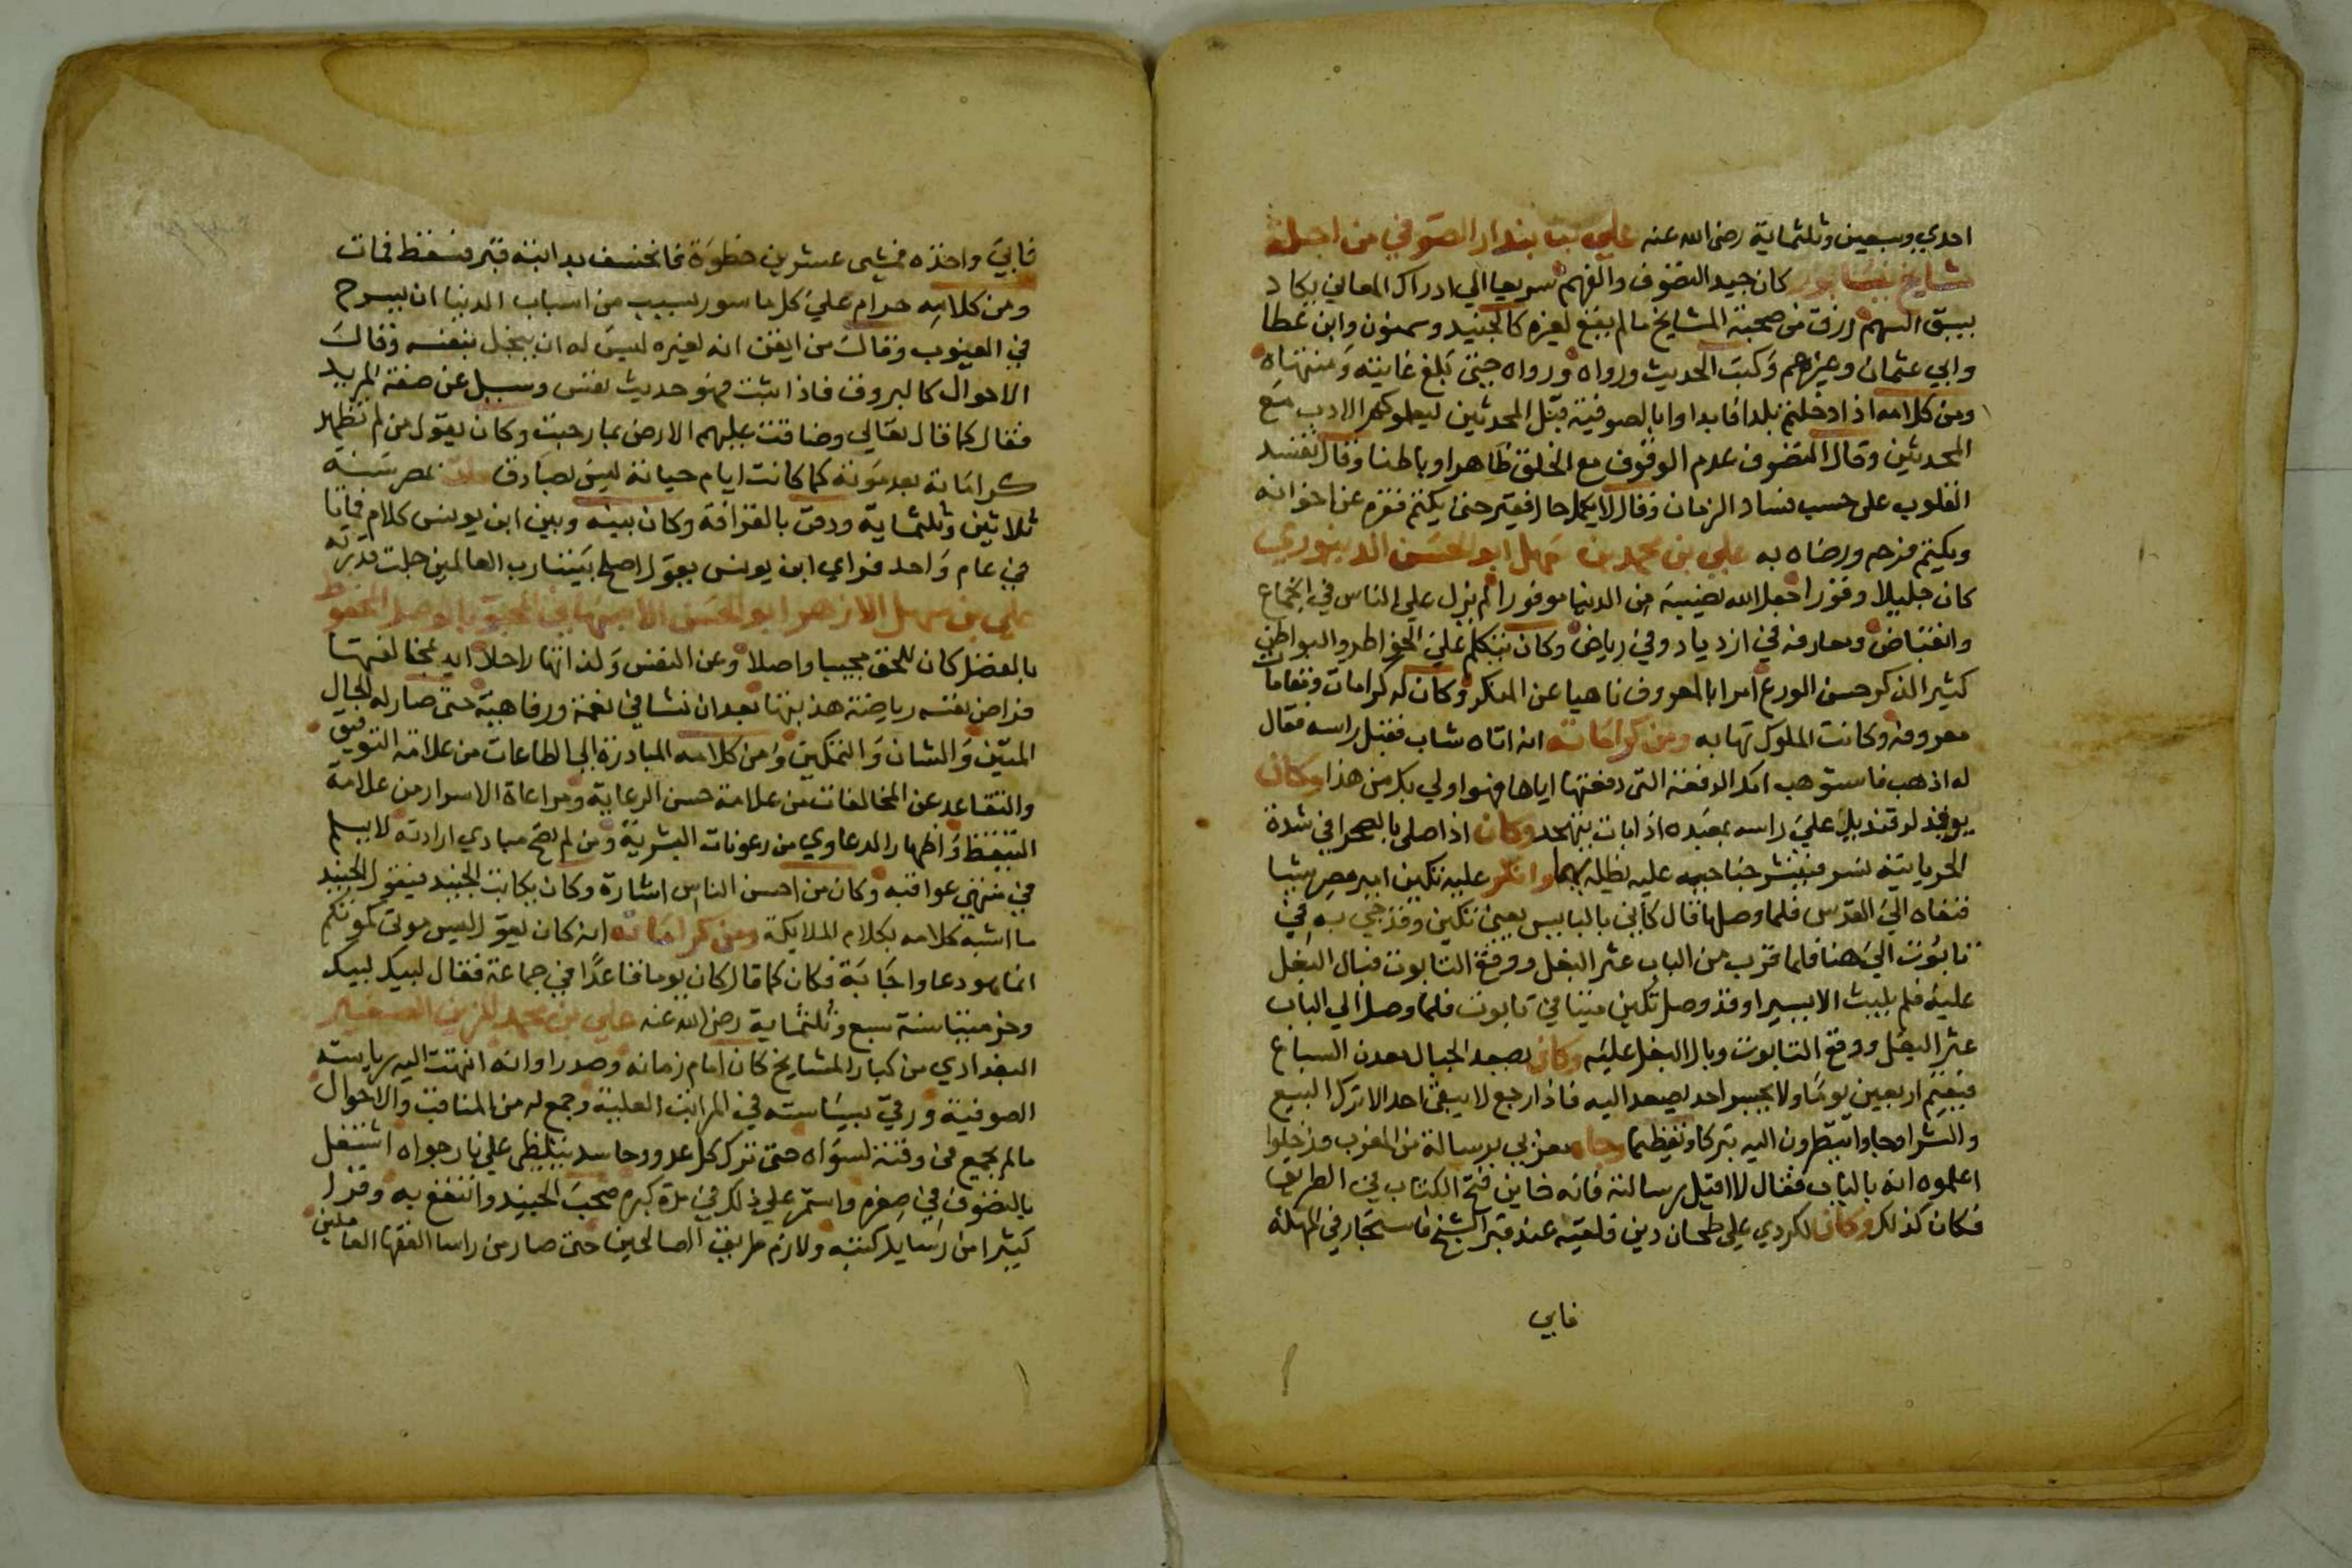 احدي وسبعين وثلثماية رضى الله عنه علي بن بندار الصوفي من اجل
مشايخ نيسابور كان جيد التصوف والفهم سريعا الي ادراك المعاني يكاد
يسبق السهم رزق من صحبة المشايخ مالم يتفق لغيره كالجنيد وسمنون وابن عطا
وابي عثمان وغيرهم وكتب الحديث ورواه ورواه حتى بلغ غايته ومنتهاه
ومن كلامه اذا دخلتم بلدا فابداوا بالصوفية قبل المحدثين ليعلموكم الادب مع
المحدثين وقال التصوف عدم الوقوف مع الخلق ظاهرا وباطنا وقال تفسد
القلوب على حسب فساد الزمان وقال لا يكمل حال فقير حتى يكتم فقره عن اخوانه
ويكتم فرحه ورضاه به علي بن محمد بن سهل ابو الحسن الدينوري
كان جليلا وقورا جعل الله نصيبه من الدنيا موفورا لم يزل علي الناس في اجتماع
وانقباض ومعارفه في ازدياد وفي رياض وكان يتكلم علي الخواطر والبواطن
كثير الذكر حسن الورع امرا بالمعروف ناهيا عن المنكر وكان له كرامات ومقامات
معروفه وكانت الملوك تهابه ومن كراماته انه اتاه شاب فقبل راسه فقال
له اذهب فاستوهب امك الدفعة التى دفعتها اياها فهو اولي بك من هذا وكان
يوقد له قنديل علي راسه بمعبده اذا بات يتهجد وكان اذا صلى بالصحرا في شدة
الحر ياتيه نسر فينشر جناحيه عليه يظله بهما وانكر عليه تكين امير مصر شيا
فنفاه الي القدس فلما وصلها قال كاني بالبايس يعني تكين وقد جي به في
تابوت الي هنا فلما قرب من الباب عثر البغل ووقع التابوت فبال البغل
عليه فلم يلبث الا يسيرا وقد وصل تكين ميتا في تابوت فلما وصل الي الباب
عثر البغل ووقع التابوت وبال البغل عليه وكان يصعد الجبال معدن السباع
فيقيم اربعين يوما ولا يجسر احد يصعد اليه فاذا رجع لا يبقى احد الا ترك البيع
والشرا وجاوا ينظرون اليه تبركا وتعظيما وجاه مغربي برسالة من المغرب فدخلوا
اعلموه انه بالباب فقال لا اقبل رسالته فانه خاين فتح الكتاب في الطريق
فكان كذلك وكان لكردي علي طحان دين فلقيه عند قبر الشيخ فاستجار في المهلة
فابي
فابي واخذه فمشى عشرين خطوة فانخسف بدابته قبر فسقط فمات
ومن كلامه حرام علي كل ماسور بسبب من اسباب الدنيا ان يسرح
في الغيوب وقال من ايقن انه لغيره ليس له ان يبخل بنفسه وقال
الاحوال كالبروق فاذا ثبت فهو حديث نفس وسيل عن صفة المريد
فقال كما قال تعالي وضاقت عليهم الارض بما رحبت وكان يقول من لم تظهر
كراماته بعد موته كما كانت ايام حياته ليس بصادق مات بمصر سنة
ثلاثين وثلثماية ودفن بالقرافة وكان بينه وبين ابن يونس كلام فماتا
في عام واحد فراي ابن يونس يقول اصلح بيننا رب العالمين جلت قدرته
علي بن سهل الازهر ابو الحسن الاصبهاني المحبو بالوصل المحفوظ
بالفضل كان للحق مجيبا واصلا وعن النفس ولذاتها راحلا ايد بمخالفتها
فراض نفسه رياضة هذبتها بعد ان نشا في نعمة ورفاهية حتى صار له الحال
المتين والشان والتمكين ومن كلامه المبادرة الي الطاعات من علامة التوفيق
والتقاعد عن المخالفات من علامة حسن الرعاية ومراعاة الاسرار من علامة
التيقظ واظهار الدعاوي من رعونات البشرية ومن لم تصح مبادي ارادته لا يسلم
في منتهي عواقبه وكان من احسن الناس اشارة وكان يكاتب الجنيد فيقول الجنيد
ما اشبه كلامه بكلام الملايكة ومن كراماته انه كان يقول ليس موتى كموتكم
انما هو دعا واجابة فكان كما قال كان يوما قاعدا في جماعة فقال لبيك لبيك
وخر ميتا سنة سبع وثلثماية رضى الله عنه علي بن محمد المزين الصغير
البغدادي من كبار المشايخ كان امام زمانه وصدر اوانه انتهت اليه رياسة
الصوفية ورقي بسياسته في المراتب العلية وجمع له من المناقب والاحوال
مالم يجمع في وقته لسواه حتى ترك كل عدو وحاسد يتلظى علي نار جواه اشتغل
بالتصوف في صغره واستمر علي ذلك في مدة كبره صحب الجنيد وانتفع به وقرا
كثيرا من رسايل كتبه ولازم طريق الصالحين حتى صار من راسا الفقها العاملين